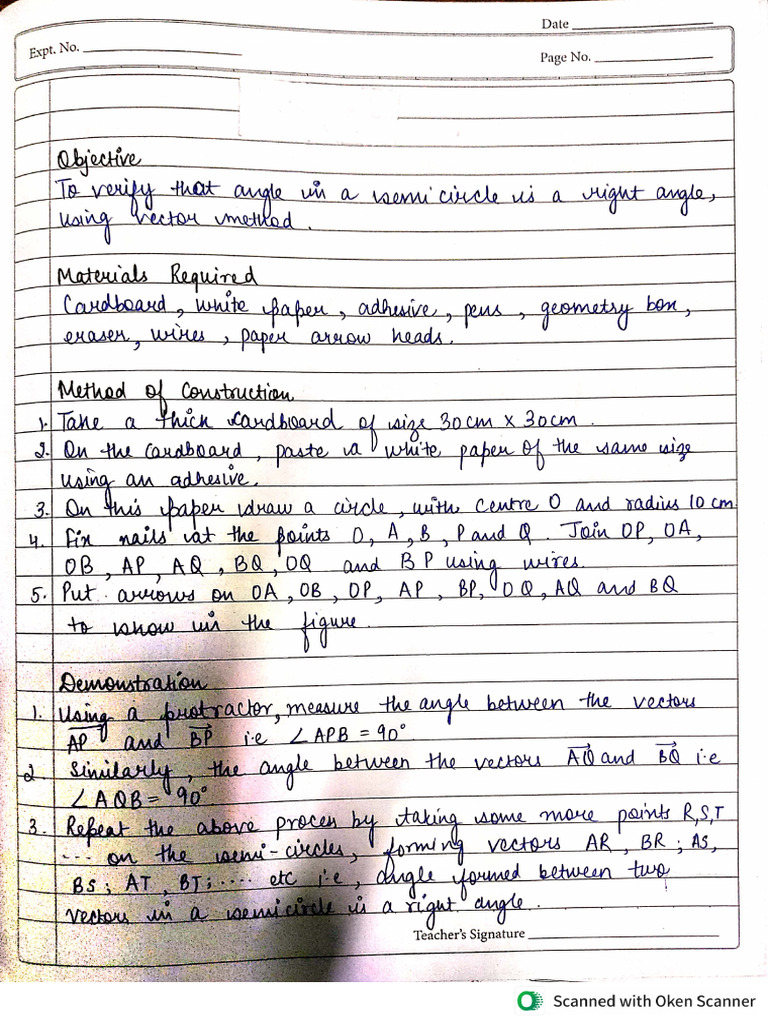 Date
Expt. No.
Page No.
Objective
To verify that angle in a semicircle is a right angle,
using vector method.
Materials Required
Cardboard, white paper, adhesive, pens, geometry box,
eraser, wires, paper arrow heads.
Method of Construction
1. Take a thick cardboard of size 30cm x 30cm.
2. On the cardboard, paste a white paper of the same size
using an adhesive.
3. On this paper draw a circle, with centre O and radius 10 cm
4. Fix nails at the points O, A, B, P and Q. Join OP, OA,
OB, AP, AQ, BQ, OQ and BP using wires.
5. Put arrows on OA, OB, OP, AP, BP, OQ, AQ and BQ
to show in the figure.
Demonstration
1. Using a protractor, measure the angle between the vectors
AP and BP i.e ∠APB = 90°
2. Similarly, the angle between the vectors AQ and BQ i.e
∠AQB = 90°
3. Repeat the above proces by taking some more points R,S,T
... on the semi-circles, forming vectors AR, BR; AS,
BS; AT, BT; .... etc i.e, angle formed between two
vectors in a semicircle is a right angle.
Teacher's Signature
Scanned with Oken Scanner